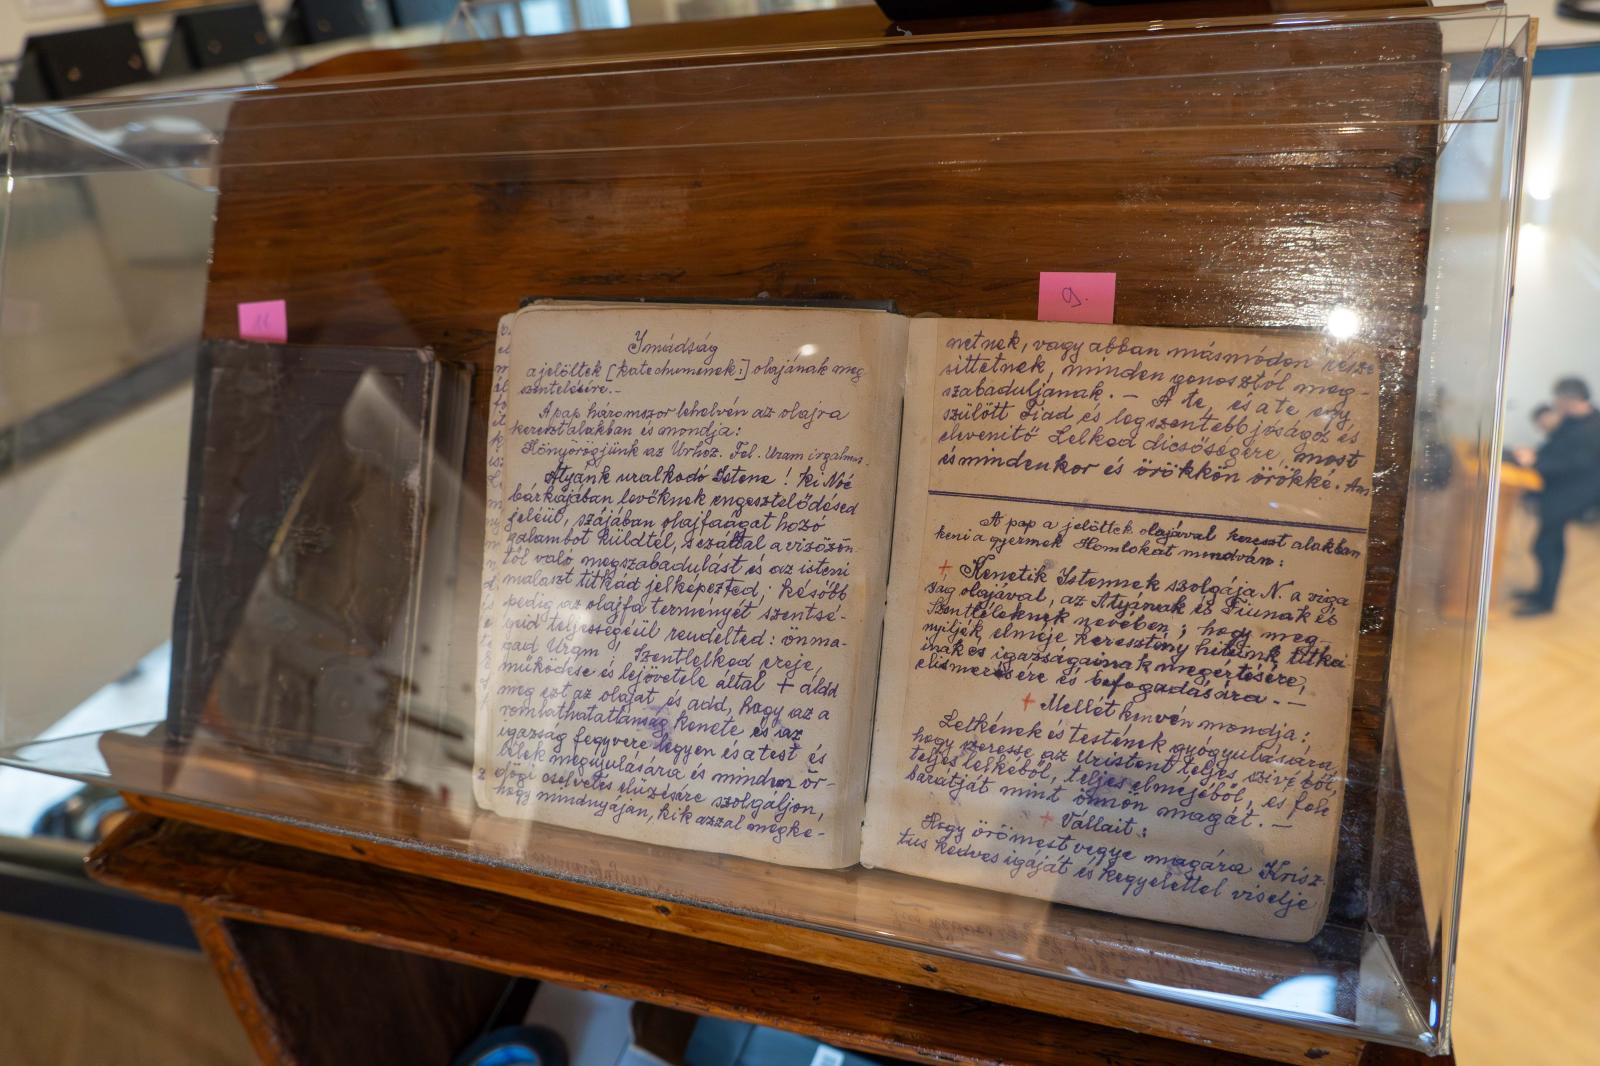 11
9.
Imádság
a jelöltek [katechumenek:] olajának meg
szentelésére.-
A pap háromszor lehelvén az olajra
kereszt alakban és mondja:
Könyörögjünk az Úrhoz. Fel. Uram irgalmaz.
Atyánk uralkodó Istene! ki Noé
bárkájában levőknek engesztelődésed
jeléül, szájában olajfaágat hozó
galambot küldtél, s ezáltal a vízözön-
től való megszabadulást és az isteni
malaszt titkád jelképezted; később
pedig az olajfa terményét szentsé-
geid teljességéül rendelted: önma-
gad Uram! Szentlelked ereje,
működése és lejövetele által + áldd
meg ezt az olajat és add, hogy az a
romlathatatlanság kenete és az
igazság fegyvere legyen és a test és
lélek megujulására és minden ör-
dögi cselvetés elűzésére szolgáljon,
hogy mindnyáján, kik azzal megke-
netnek, vagy abban másmódon része-
síttetnek, minden gonosztól meg-
szabaduljanak. — A te, és a te egy
szülött Fiad és legszentebb jóságos és
elevenítő Lelked dicsőségére, most
és mindenkor és örökkön örökké. Am
A pap a jelöltek olajával kereszt alakban
keni a gyermek Homlokát mondván:
+ Kenetik Istennek szolgája N. a víga
ság olajával, az Atyának és Fiunak és
Szentléleknek nevében; hogy meg-
nyiljék elméje keresztény hitünk titka
inak és igazságainak megértésére,
elismerésére és befogadására. -
+ Mellét kenvén mondja:
Lelkének és testének gyógyulására,
hogy szeresse az Uristent teljes szivéből,
teljes lelkéből, teljes elméjéből, és fele
barátját mint önnön magát. —
+ Vállait:
Hogy örömest vegye magára Krisz-
tus kedves igáját és kegyelettel viselje